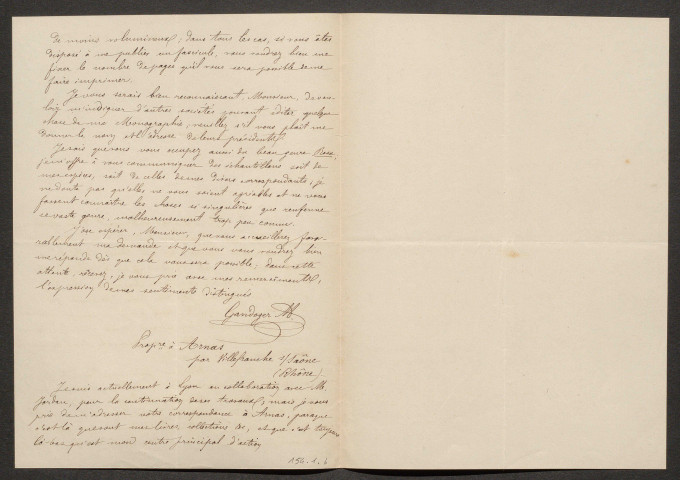 de moins volumineux; dans tous les cas, si vous êtes
disposé à me publier un fascicule, vous voudrez bien me
fixer le nombre de pages qu'il vous sera possible de me
faire imprimer.
Je vous serais bien reconnaissant, Monsieur, de vou-
loir m'indiquer d'autres sociétés pouvant éditer quelque
chose de ma Monographie, veuillez s'il vous plaît me
donner le nom et l'adresse de leurs présidents.
Je sais que vous vous occupez aussi du beau genre Rosa.
Je m'offre à vous communiquer des échantillons soit de
mes espèces, soit de celles de mes divers correspondants; je
ne doute pas qu'elles ne vous soient agréables et ne vous
fassent connaître les choses si singulières que renferme
ce vaste genre, malheureusement trop peu connu.
J'ose espérer, Monsieur, que vous accueillerez favo-
rablement ma demande et que vous voudrez bien
me répondre dès que cela vous sera possible; dans cette
attente, recevez, je vous prie avec mes remerciements,
l'expression de mes sentiments distingués
Gandoger M
Propre à Arnas
par Villefranche s/Saône
(Rhône)
Je suis actuellement à Lyon en collaboration avec M.
Jordan, pour la continuation de ses travaux; mais je vous
prie de m'adresser votre correspondance à Arnas, parce que
c'est là que sont mes livres collections &c, et que c'est toujours
là-bas qu'est mon centre principal d'action
156.1.6